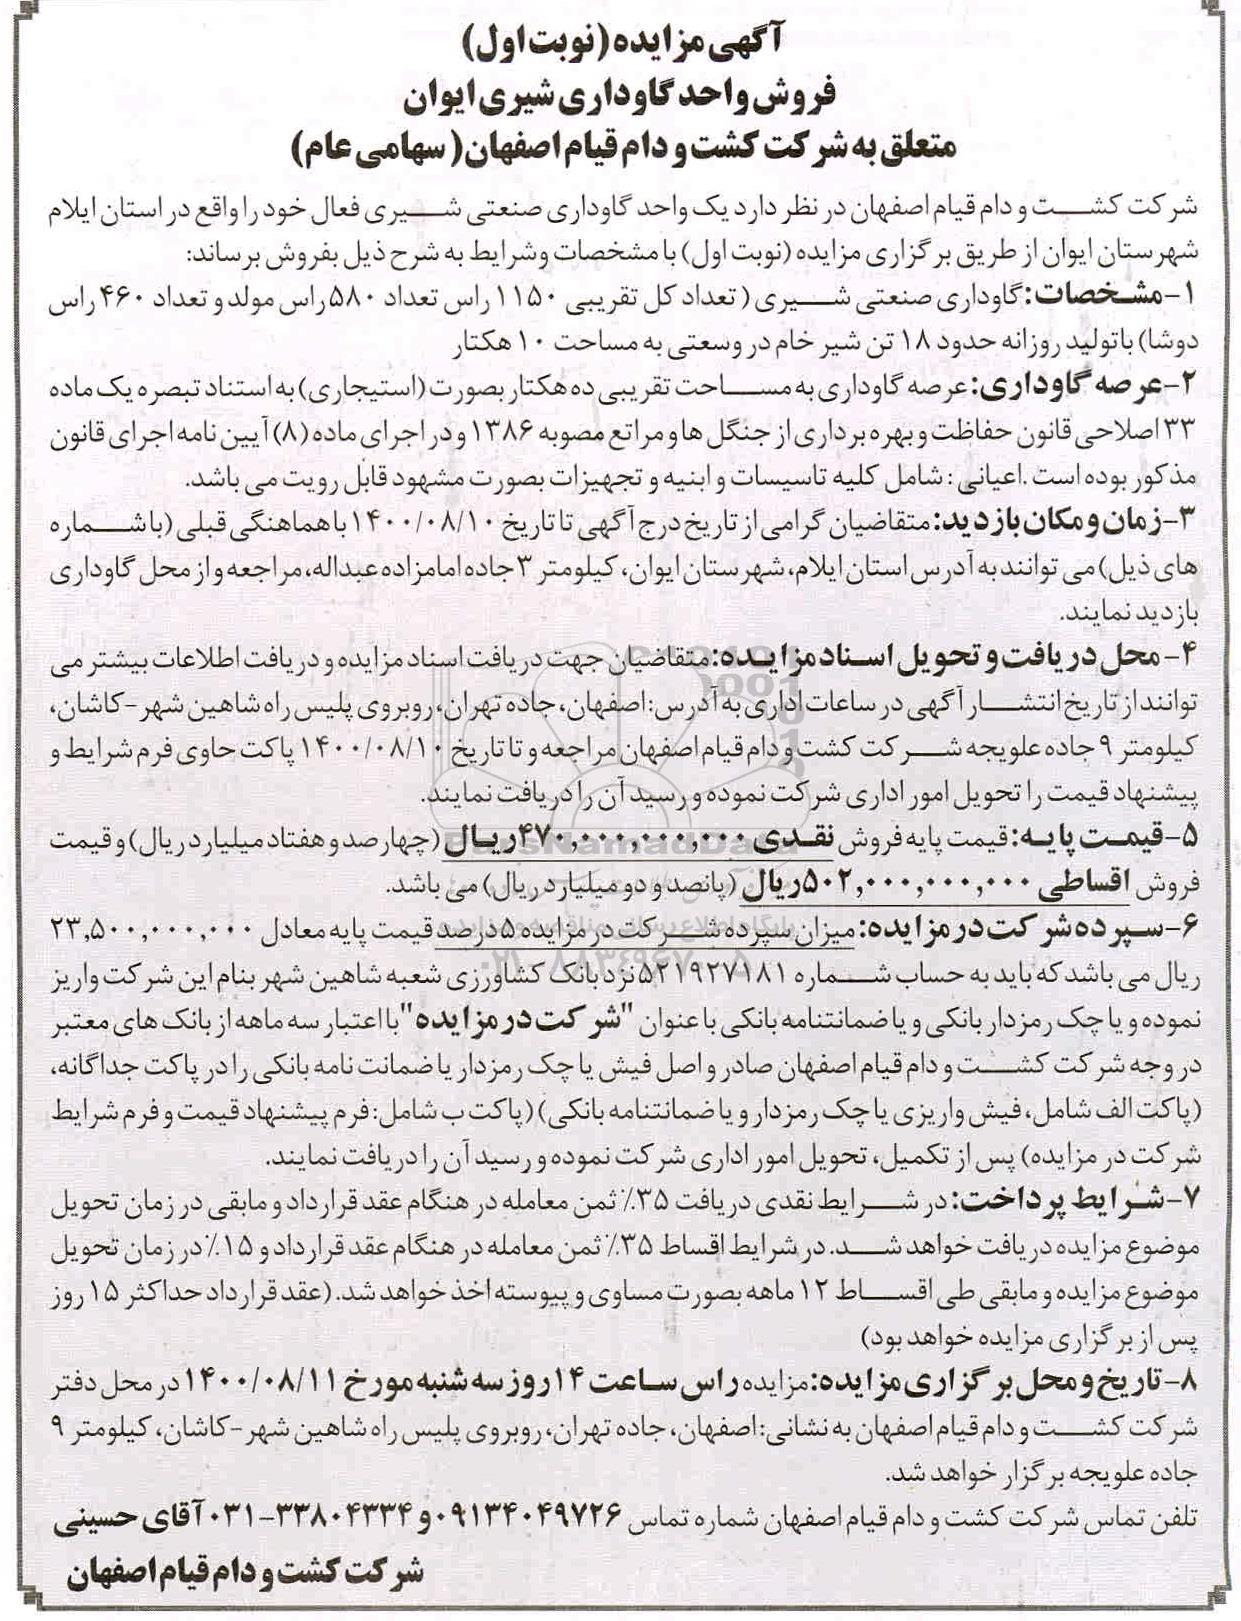 آگهی مزایده (نوبت اول)
فروش واحد گاوداری شیری ایوان
متعلق به شرکت کشت و دام قیام اصفهان( سهامی عام)
شرکت کشت و دام قیام اصفهان در نظر دارد یک واحد گاوداری صنعتی شیری فعال خود را واقع در استان ایلام
شهرستان ایوان از طریق برگزاری مزایده (نوبت اول) با مشخصات وشرایط به شرح ذیل بفروش برساند:
۱-مشخصات: گاوداری صنعتی شیری ( تعداد کل تقریبی ۱۱۵۰ راس تعداد ۵۸۰ راس مولد و تعداد ۴۶۰ راس
دوشا) باتولید روزانه حدود ۱۸ تن شیر خام در وسعتی به مساحت ۱۰ هکتار
۲-عرصه گاوداری: عرصه گاوداری به مساحت تقریبی ده هکتار بصورت (استیجاری) به استناد تبصره یک ماده
۳۳ اصلاحی قانون حفاظت و بهره برداری از جنگل ها و مراتع مصوبه ۱۳۸۶ و در اجرای ماده (۸) آیین نامه اجرای قانون
مذکور بوده است .اعیانی : شامل کلیه تاسیسات و ابنیه و تجهیزات بصورت مشهود قابل رویت می باشد.
۳-زمان و مکان بازدید: متقاضیان گرامی از تاریخ درج آگهی تا تاریخ ۱۴۰۰/۰۸/۱۰ با هماهنگی قبلی (با شماره
های ذیل) می توانند به آدرس استان ایلام، شهرستان ایوان، کیلومتر ۳ جاده امامزاده عبداله، مراجعه و از محل گاوداری
بازدید نمایند.
۴- محل دریافت و تحویل اسناد مزایده: متقاضیان جهت دریافت اسناد مزایده و دریافت اطلاعات بیشتر می
توانند از تاریخ انتشار آگهی در ساعات اداری به آدرس: اصفهان، جاده تهران، روبروی پلیس راه شاهین شهر -کاشان،
کیلومتر ۹ جاده علویجه شرکت کشت و دام قیام اصفهان مراجعه و تا تاریخ ۱۴۰۰/۰۸/۱۰ پاکت حاوی فرم شرایط و
پیشنهاد قیمت را تحویل امور اداری شرکت نموده و رسید آن را دریافت نمایند.
۵-قیمت پایه: قیمت پایه فروش نقدی ۴۷۰,۰۰۰,۰۰۰,۰۰۰ریال (چهارصد و هفتاد میلیارد ریال) و قیمت
فروش اقساطی ۵۰۲,۰۰۰,۰۰۰,۰۰۰ریال (پانصد و دو میلیارد ریال) می باشد.
۶-سپرده شرکت در مزایده: میزان سپرده شرکت در مزایده ۵ درصد قیمت پایه معادل ۲۳,۵۰۰,۰۰۰,۰۰۰
ریال می باشد که باید به حساب شماره ۵۲۱۹۲۷۱۸۱ نزد بانک کشاورزی شعبه شاهین شهر بنام این شرکت واریز
نموده و یا چک رمزدار بانکی و یا ضمانتنامه بانکی با عنوان "شرکت در مزایده" با اعتبار سه ماهه از بانک های معتبر
در وجه شرکت کشت و دام قیام اصفهان صادر و اصل فیش یا چک رمزدار یا ضمانت نامه بانکی را در پاکت جداگانه،
(پاکت الف شامل، فیش واریزی یا چک رمزدار و یا ضمانتنامه بانکی) (پاکت ب شامل: فرم پیشنهاد قیمت و فرم شرایط
شرکت در مزایده) پس از تکمیل، تحویل امور اداری شرکت نموده و رسید آن را دریافت نمایند.
۷-شرایط پرداخت: در شرایط نقدی دریافت ۳۵٪ ثمن معامله در هنگام عقد قرارداد و مابقی در زمان تحویل
موضوع مزایده دریافت خواهد شد. در شرایط اقساط ۳۵٪ ثمن معامله در هنگام عقد قرارداد و ۱۵٪ در زمان تحویل
موضوع مزایده و مابقی طی اقساط ۱۲ ماهه بصورت مساوی و پیوسته اخذ خواهد شد. (عقد قرارداد حداکثر ۱۵ روز
پس از برگزاری مزایده خواهد بود)
۸-تاریخ و محل برگزاری مزایده: مزایده راس ساعت ۱۴ روز سه شنبه مورخ ۱۴۰۰/۰۸/۱۱ در محل دفتر
شرکت کشت و دام قیام اصفهان به نشانی: اصفهان، جاده تهران، روبروی پلیس راه شاهین شهر -کاشان، کیلومتر ۹
جاده علویجه برگزار خواهد شد.
تلفن تماس شرکت کشت و دام قیام اصفهان شماره تماس ۰۹۱۳۴۰۴۹۷۲۶ و ۳۳۸۰۴۳۳۴-۰۳۱ آقای حسینی
شرکت کشت و دام قیام اصفهان